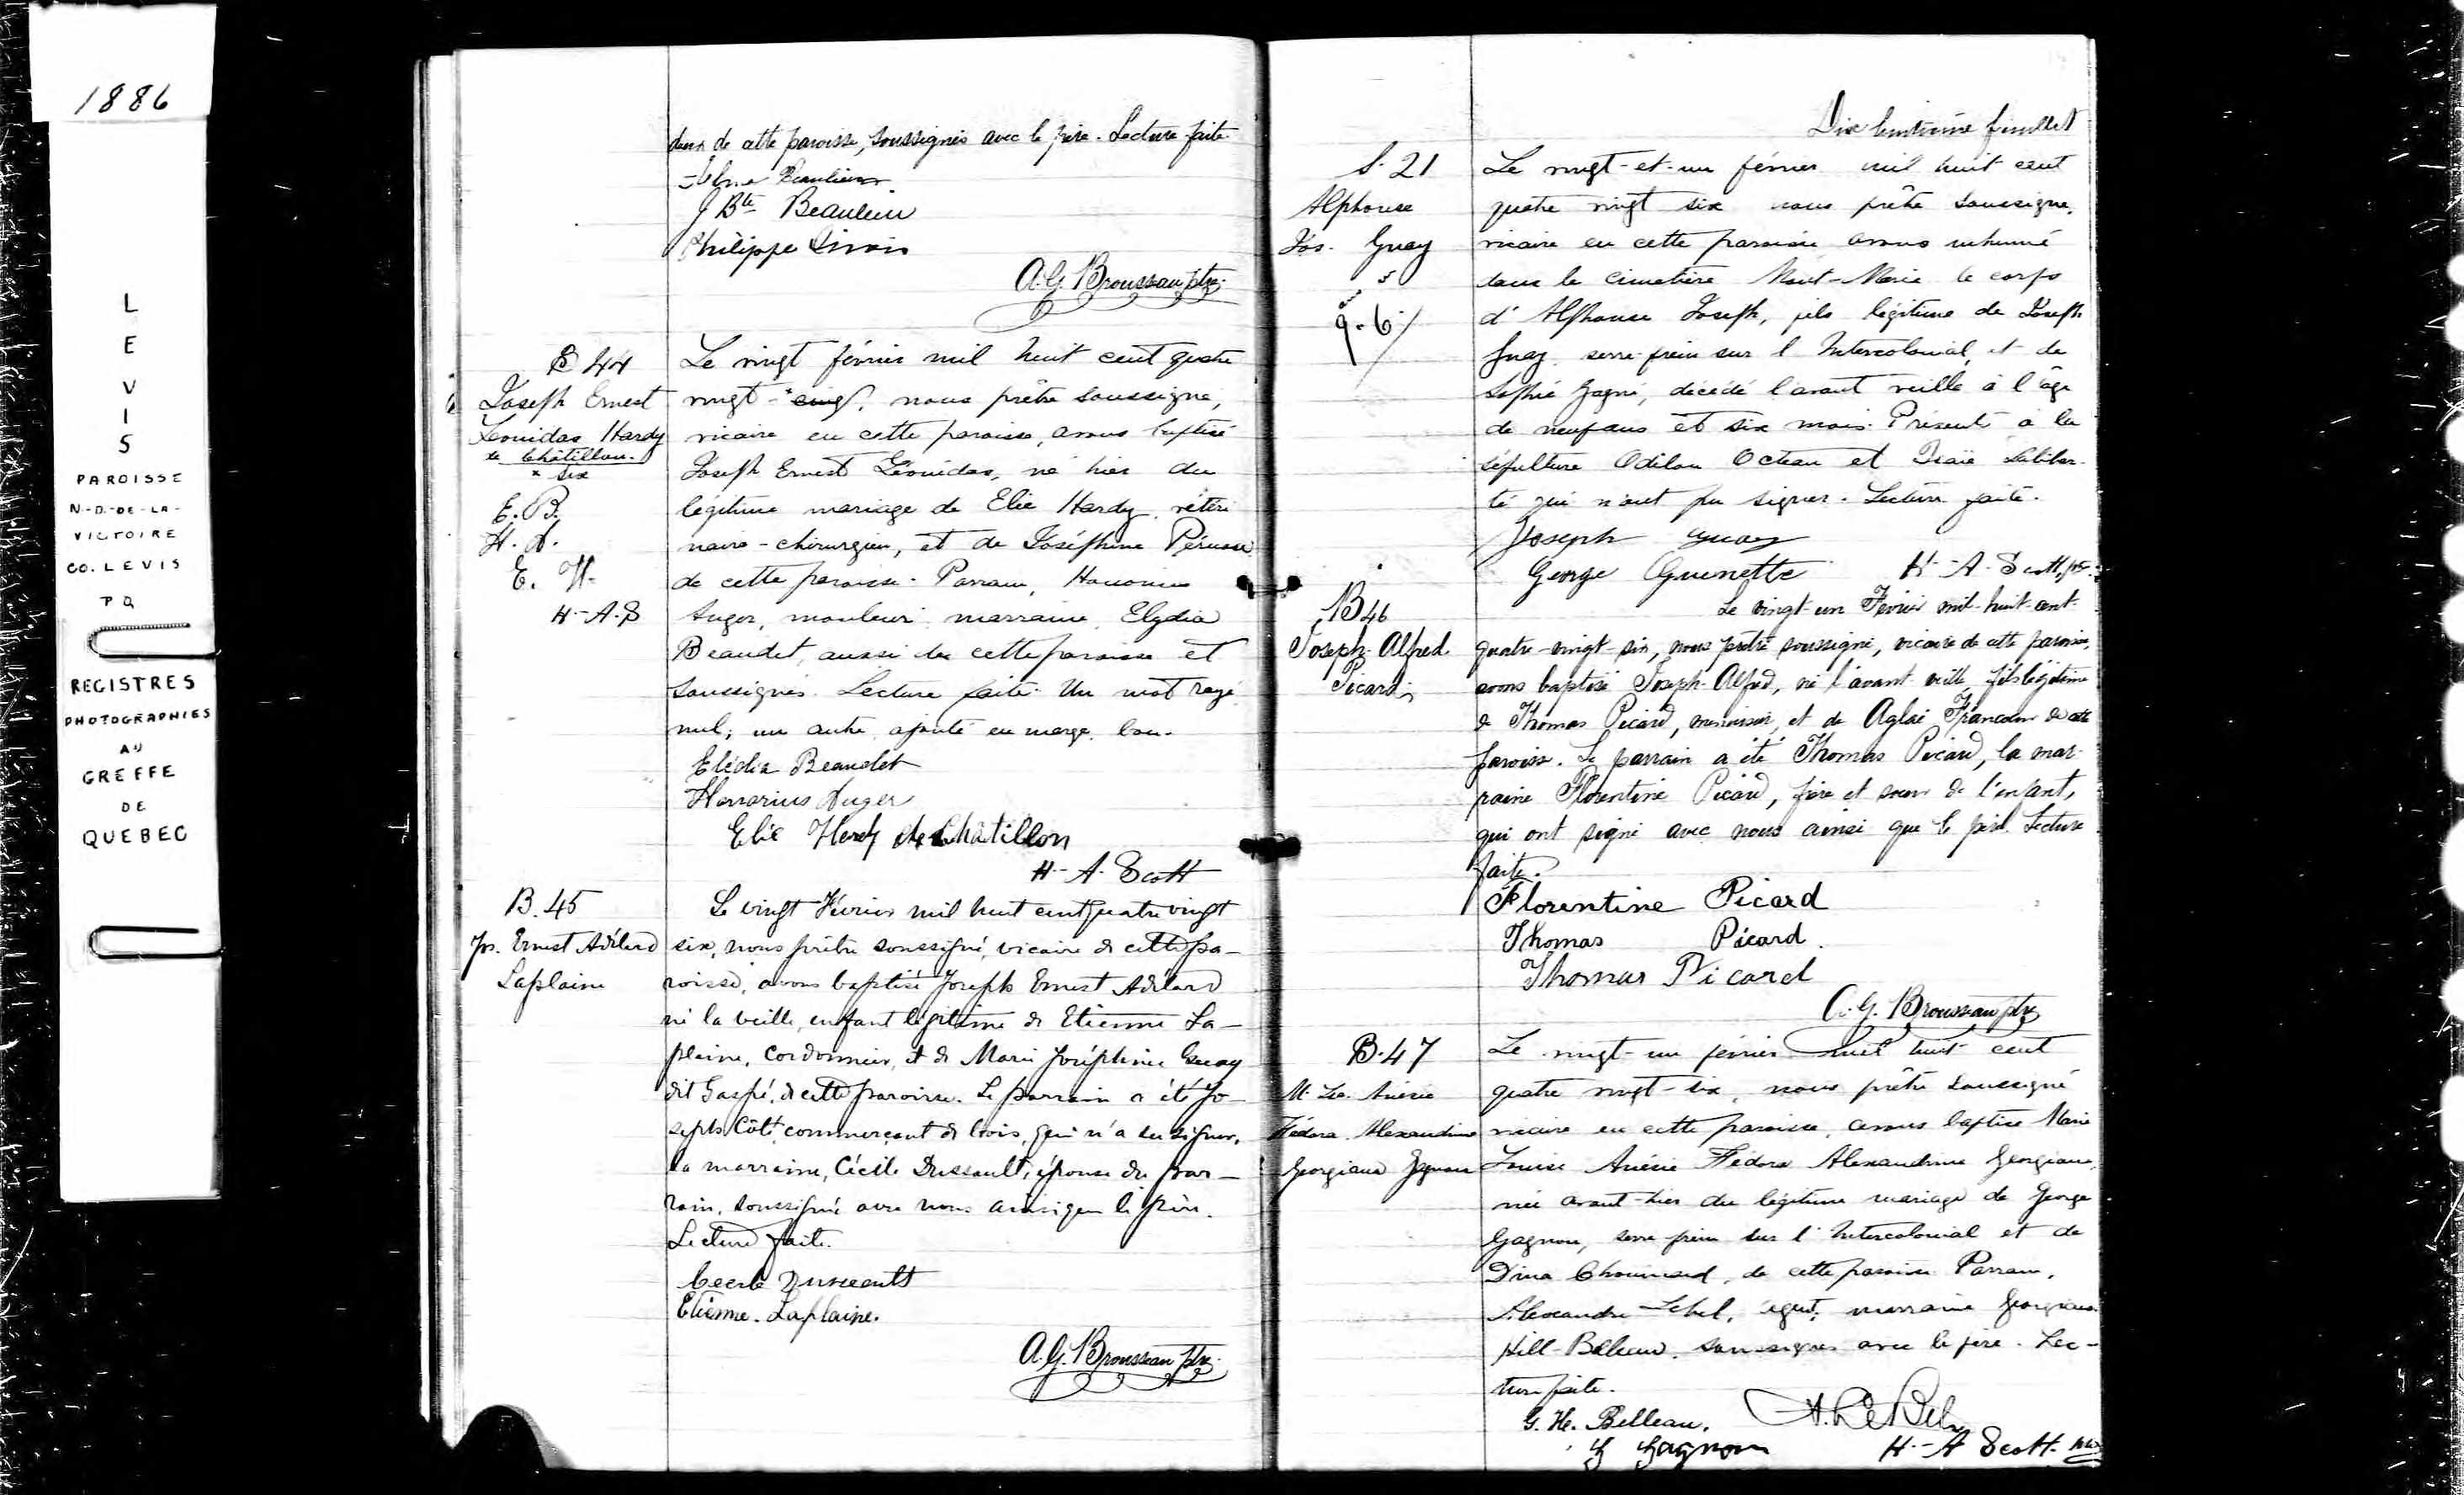 1886
L
E
V
I
S
PAROISSE
N.-D.-DE-LA-
VICTOIRE
CO. LEVIS
P Q
REGISTRES
PHOTOGRAPHIES
AU
GREFFE
DE
QUEBEC
deux de cette paroisse, soussignés avec le père. Lecture faite.
Beaulieu
J Bte Beaulieu
Philippe Sirois
A. G. Brousseau ptre
B 44
Joseph Ernest
Leonidas Hardy
de Châtillon.
x six
E. B.
H. A.
E. H.
H.-A. S
Le vingt février mil huit cent quatre
vingt-x cinq, nous prêtre soussigné,
vicaire en cette paroisse, avons baptisé
Joseph Ernest Léonidas, né hier du
légitime mariage de Elie Hardy, vétéri
naire-chirurgien, et de Joséphine Pérusse
de cette paroisse. Parrain, Honorius
Auger, mouleur, marraine, Elydia
Beaudet, aussi de cette paroisse et
soussignés. Lecture faite. Un mot rayé
nul; un autre, ajouté en marge, bon.
Elédia Beaudet
Honorius Auger
Elie Hardy de Châtillon
H.-A. Scott
B. 45
Jos. Ernest Adélard
Laplaine
Le vingt Février mil huit cent quatre vingt
six, nous prêtre soussigné, vicaire de cette pa-
roisse, avons baptisé Joseph Ernest Adélard
né la veille, enfant légitime de Etienne La-
plaine, cordonnier, et de Marie Joséphine Guay
dit Gaspé, de cette paroisse. Le parrain a été Jo-
seph Côté, commerçant de bois, qui n'a su signer,
la marraine, Cécile Dussault, épouse du par-
rain, soussigné avec nous ainsi que le père.
Lecture faite.
Cecile Dusseault
Etienne. Laplaine.
A. G. Brousseau ptre
Dix huitième feuillet
S. 21
Alphonse
Jos. Guay
9. 6.
Le vingt-et-un février mil huit cent
quatre vingt six nous prêtre soussigné,
vicaire en cette paroisse avons inhumé
dans le cimetière Mont-Marie le corps
d'Alphonse Joseph, fils légitime de Joseph
Guay serre-frein sur l'Intercolonial et de
Sophie Gagné, décédé l'avant veille à l'âge
de neuf ans et six mois. Présents à la
sépulture Odilon Octeau et Isaïe Laliber-
té qui n'ont pu signer. Lecture faite.
Joseph Guay
George Guenette
H.-A. Scott, ptre
B 46
Joseph-Alfred
Picard
Le vingt-un Février mil-huit-cent-
quatre-vingt-six, nous prêtre soussigné, vicaire de cette paroisse,
avons baptisé Joseph-Alfred, né l'avant veille, fils légitime
de Thomas Picard, menuisier, et de Aglaé Francoeur de cette
paroisse. Le parrain a été Thomas Picard, la mar-
raine Florentine Picard, frère et sœur de l'enfant,
qui ont signé avec nous ainsi que le père. Lecture
faite.
Florentine Picard
Thomas Picard.
Thomas Picard
A. G. Brousseau ptre
B. 47
M. Anésie
Fédora Alexandrine
Georgiana Gagnon
Le vingt-un février mil huit cent
quatre vingt-six, nous prêtre soussigné
vicaire en cette paroisse, avons baptisé Marie
Louise Anésie Fédora Alexandrine Georgiana,
née avant-hier du légitime mariage de George
Gagnon, serre frein sur l'Intercolonial et de
Dina Chouinard, de cette paroisse. Parrain,
Alexandre Lebel, agent, marraine Georgiana
Hill-Belleau, soussignés avec le père. Lec-
ture faite.
G. H. Belleau.
A. LeBel
G Gagnon
H.-A Scott. ptre